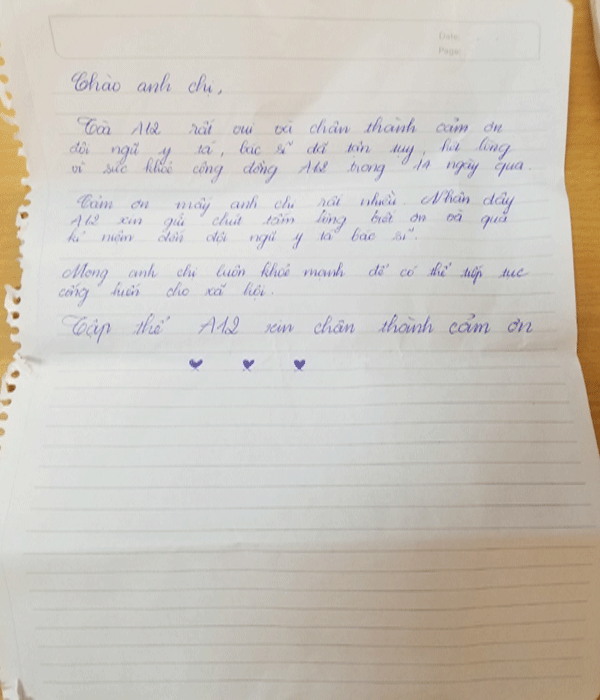 Date:
Page:
Chào anh chị,
Toà A12 rất vui và chân thành cảm ơn
đội ngũ y tá, bác sĩ đã tận tụy, hết lòng
vì sức khoẻ cộng đồng A12 trong 14 ngày qua.
Cảm ơn mấy anh chị rất nhiều. Nhân đây
A12 xin gửi chút tấm lòng biết ơn và quà
kỉ niệm đến đội ngũ y tá bác sĩ.
Mong anh chị luôn khoẻ mạnh để có thể tiếp tục
cống hiến cho xã hội.
Tập thể A12 xin chân thành cảm ơn